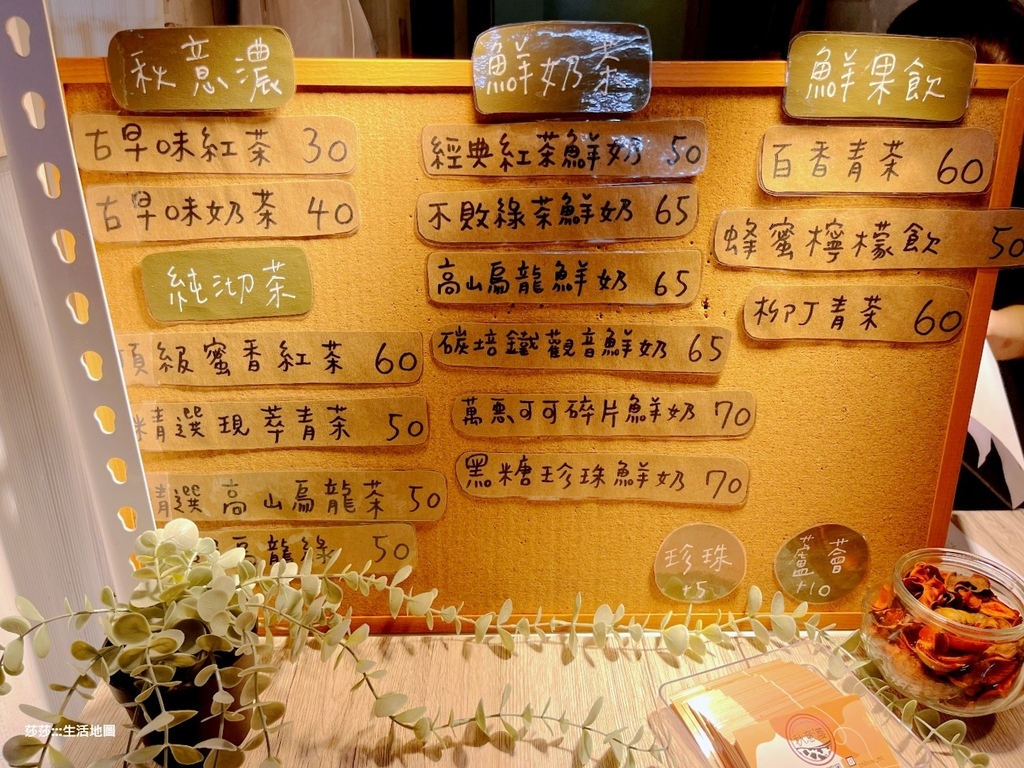 秋意濃
古早味紅茶 30
古早味奶茶 40
純沏茶
頂級蜜香紅茶 60
精選現萃青茶 50
精選高山烏龍茶 50
龍綠 50
鮮奶茶
經典紅茶鮮奶 50
不敗綠茶鮮奶 65
高山烏龍鮮奶 65
碳培鐵觀音鮮奶 65
萬惡可可碎片鮮奶 70
黑糖珍珠鮮奶 70
鮮果飲
百香青茶 60
蜂蜜檸檬飲 50
柳丁青茶 60
珍珠
+5
蘆薈
+10
莎莎:::生活地圖